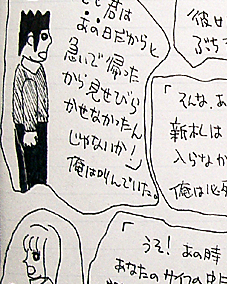 君は
あの日だからと
急いで帰った
から見せびら
かせなかったん
じゃないか!」
俺は叫んでいた。
彼女
ぶち
「そんな、あ
新札は
入らなか
俺は必
「うそ! あの時
あなたのサイフの中